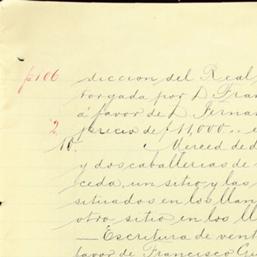 p106 diccion del Real
torgada por D. Fran
á favor de D. Fernan
2 precio de $11,000..
10. Merced de d
y dos caballerias de
ceda, un sitio y las
situados en los Llan
otro sitio en los Ll
— Escritura de vent
favor de Francisco